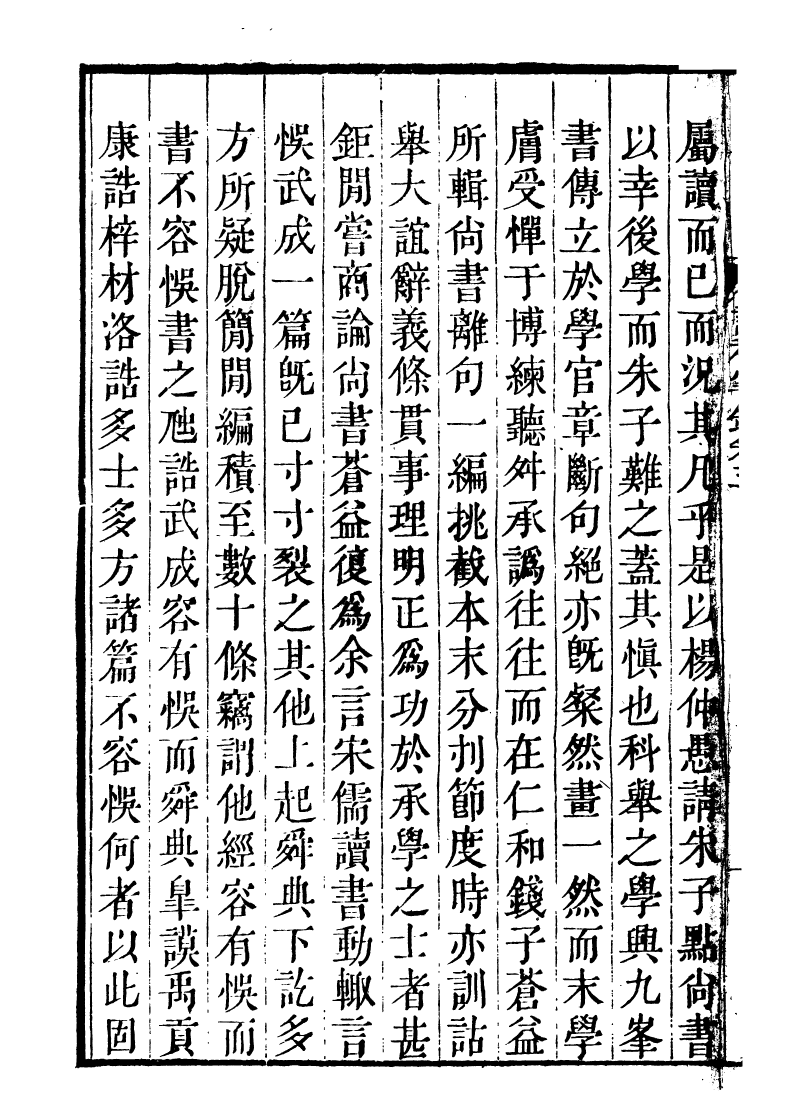 屬讀而已而況其凡乎是以楊仲愚請朱子點尙書
以幸後學而朱子難之蓋其愼也科舉之學興九峯
書傳立於學官章斷句絕亦旣粲然畫一然而末學
膚受憚于博練聽舛承譌往往而在仁和錢子蒼益
所輯尙書離句一編挑截本末分刌節度時亦訓詁
舉大誼辭義條貫事理明正爲功於承學之士者甚
鉅閒嘗商論尙書蒼益復爲余言宋儒讀書動輙言
悞武成一篇旣已寸寸裂之其他上起舜典下訖多
方所疑脫簡閒編積至數十條竊謂他經容有悞而
書不容悞書之他誥武成容有悞而舜典臯謨禹貢
康誥梓材洛誥多士多方諸篇不容悞何者以此固